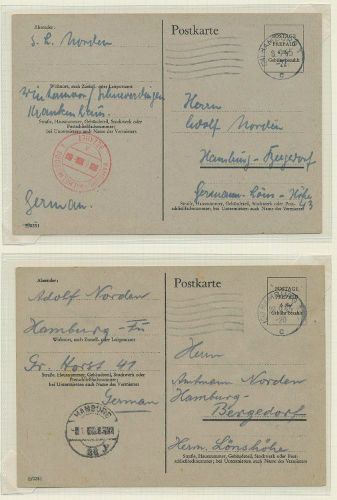 Absender:
Postkarte
POSTAGE
PREPAID
6 Pf
Gebühr bezahlt
Norden
Wohnort, auch Zustell- oder Leitpostamt
Wintermoor / Schneverdingen
Krankenhaus
Straße, Hausnummer, Gebäudeteil, Stockwerk oder
Postschließfachnummer;
bei Untermietern auch Name des Vermieters
German
Herrn
Adolf Norden
Hamburg-Bergedorf
Hermann-Löns-Höhe
43
Straße, Hausnummer, Gebäudeteil, Stockwerk oder Post-
schließfachnummer; bei Untermietern auch Name des Vermieters
Absender:
Postkarte
POSTAGE
PREPAID
6 Pf
Gebühr bezahlt
Adolf Norden
Hamburg-Fu
Wohnort, auch Zustell- oder Leitpostamt
Gr. Horst 41
Straße, Hausnummer, Gebäudeteil, Stockwerk oder
Postschließfachnummer;
bei Untermietern auch Name des Vermieters
German
HAMBURG
Herrn
Amtmann Norden
Hamburg-
Bergedorf
Herm. Lönshöhe
Straße, Hausnummer, Gebäudeteil, Stockwerk oder Post-
schließfachnummer; bei Untermietern auch Name des Vermieters